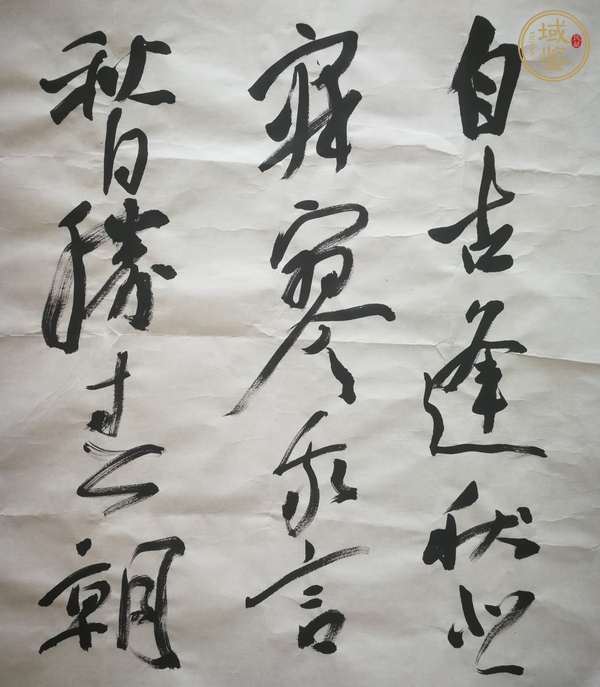 自古逢秋悲
寂寥我言
秋日勝春朝
域鉴